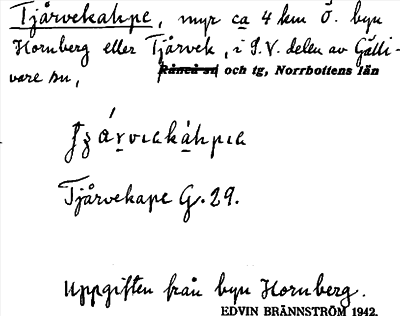 Tjårvekahpe, myr ca 4 km Ö. byn
Hornberg eller Tjårvek, i S.V. delen av Gälli-
vare sn, Råneå sn och tg, Norrbottens län
Tjårvekape G. 29.
Uppgiften från byn Hornberg.
EDVIN BRÄNNSTRÖM 1942.